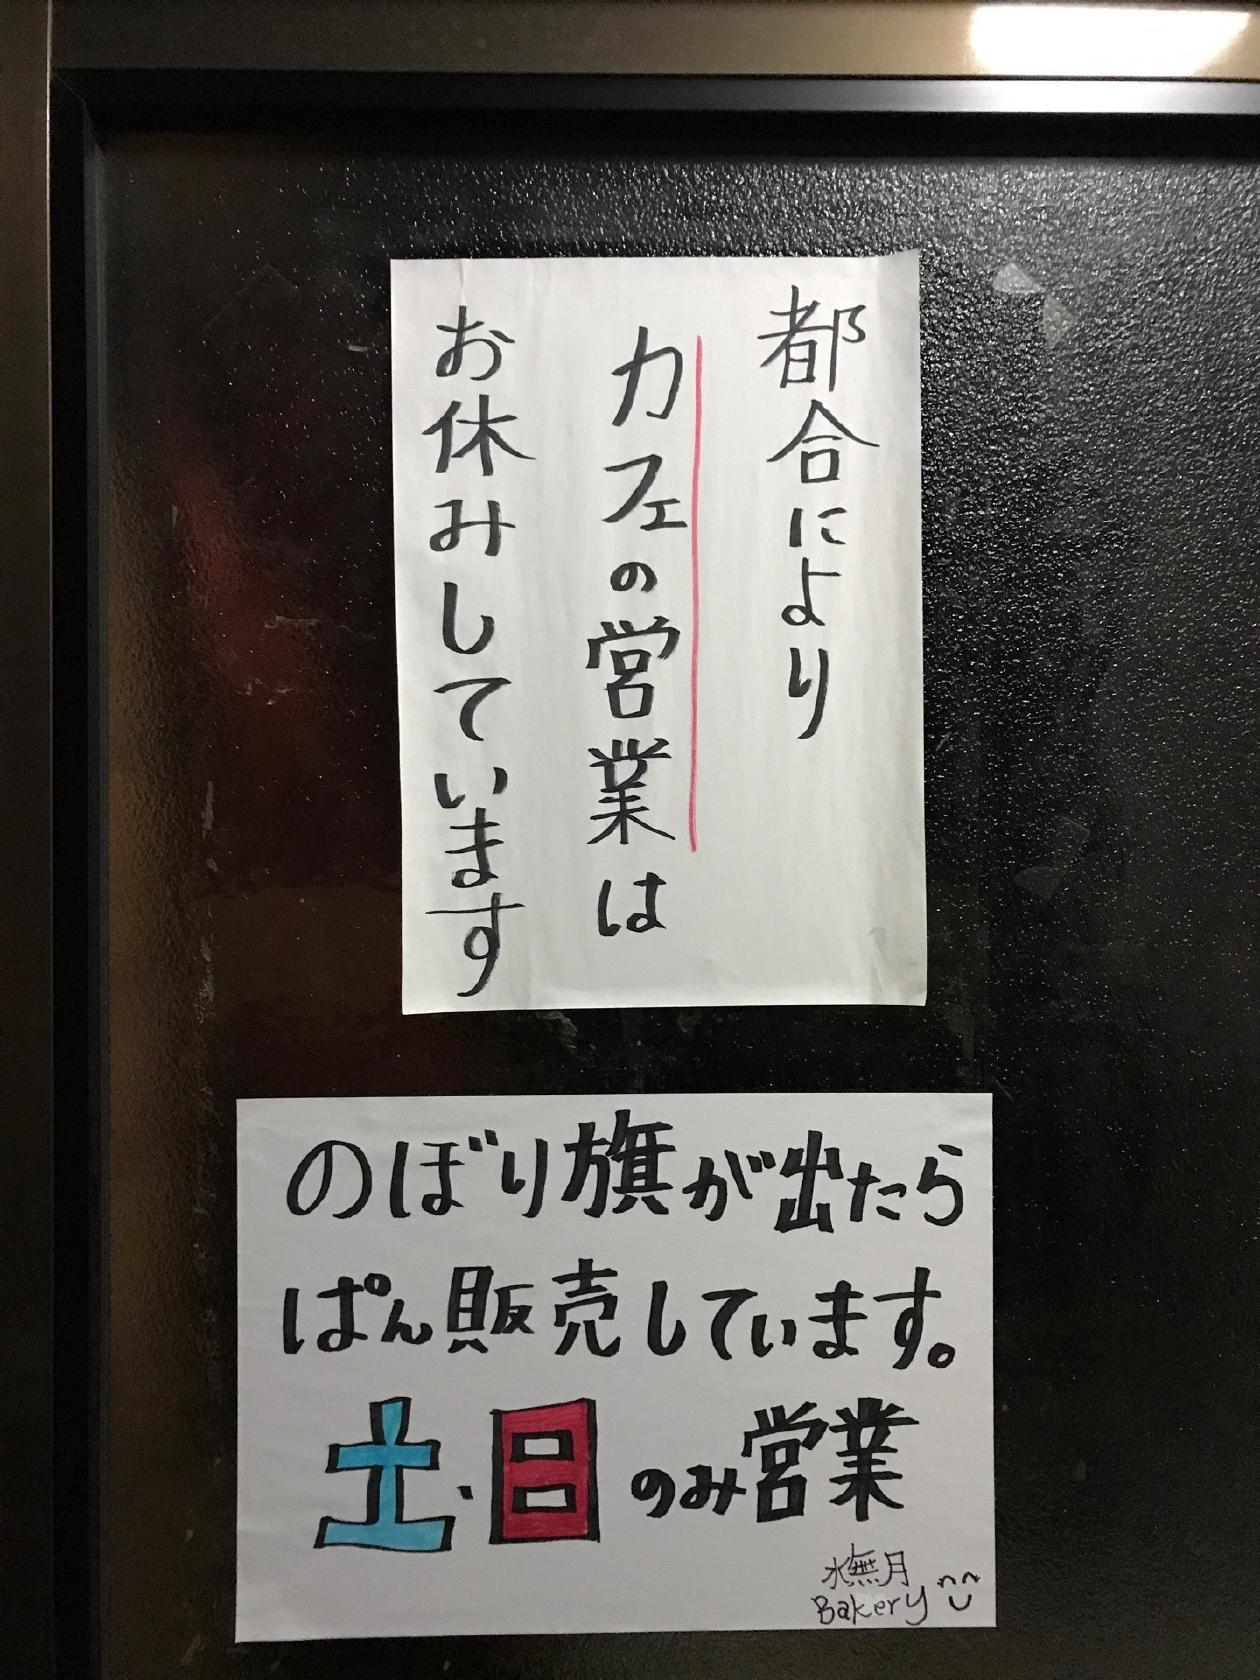 都合により
カフェの営業は
お休みしています
のぼり旗が出たら
ぱん販売しています。
土・日のみ営業
水無月
Bakery